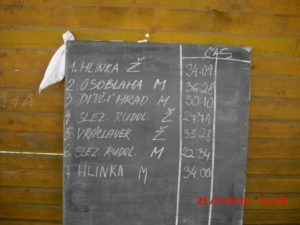 ČAS
1. HLINKA Ž 34.09
2 OSOBLAHA M 36.28
3 DÍVČÍ HRAD M 50.10
4 SLEZ. RUDOL. Ž
5 VRACLÁVEK Ž 35.28
6 SLEZ. RUDOL. M 22.34
7 HLINKA M 34.00